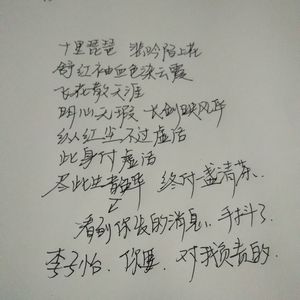 十里琵琶 浅吟陌上花
舒红袖血色染云霞
飞花散天涯
明心无瑕 长剑映风华
纵红尘不过虚话
此身付虚话
尽此生 华 终付盏清茶
看到你 的消息，手抖了
李子怡，你要 对我负责的。